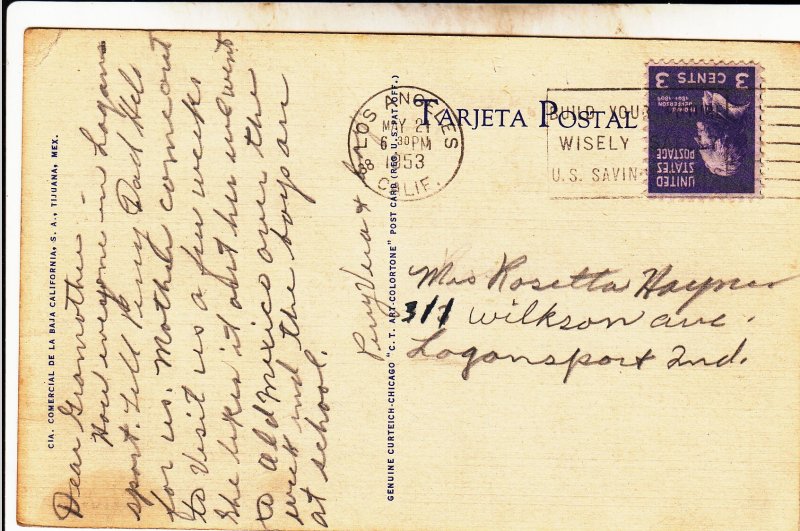 Dear Gramother –
How everyone in Logans
port. Tell Perry Dad Hello
for us. Mother come out
to Visit us a few weeks
She likes it out her we went
to old Mexico over the
week ind the boys are
at school.
Perry Vera &
CIA. COMERCIAL DE LA BAJA CALIFORNIA, S. A., TIJUANA, MEX.
GENUINE CURTEICH-CHICAGO "C. T. ART-COLORTONE" POST CARD (REG. U. S. PAT. OFF.)
TARJETA POSTAL
LOS ANGELES
MAY 21
6 30 PM
1953
CALIF.
8
BUILD YOU
WISELY
U.S. SAVIN
3 CENTS 3
JEFFERSON
UNITED
STATES
POSTAGE
Mrs Rosetta Hayner
311 Wilkson ave.
Logansport Ind.